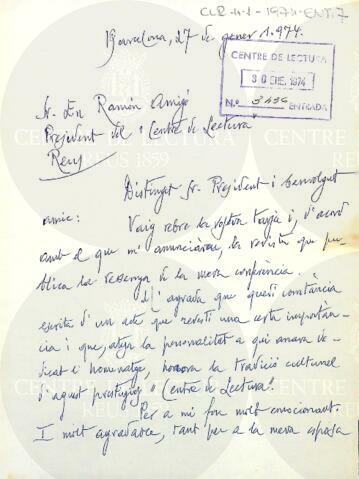 CLR-4-1-1974-ENT.7
Barcelona, 27 de gener 1.974.
CENTRE DE LECTURA
30 ENE. 1974
N.º 3436 ENTRADA
Sr. En Ramón Amigó
President del "Centre de Lectura"
Reus
Distingit Sr. President i benvolgut
amic: Vaig rebre la vostra tarja i, d'acord
amb el que m'anunciàveu, la revista que pu-
blica la ressenya de la meva conferència.
M'agrada que quedi constància
escrita d'un acte que revestí una certa importàn-
cia i que, atesa la personalitat a qui anava de-
dicat l'homenatge, honora la tradició cultural
d'aquest prestigiós "Centre de Lectura".
Per a mi fou molt emocionant.
I molt agradable, tant per a la meva esposa
CENTRE DE LECTURA
REUS 1859